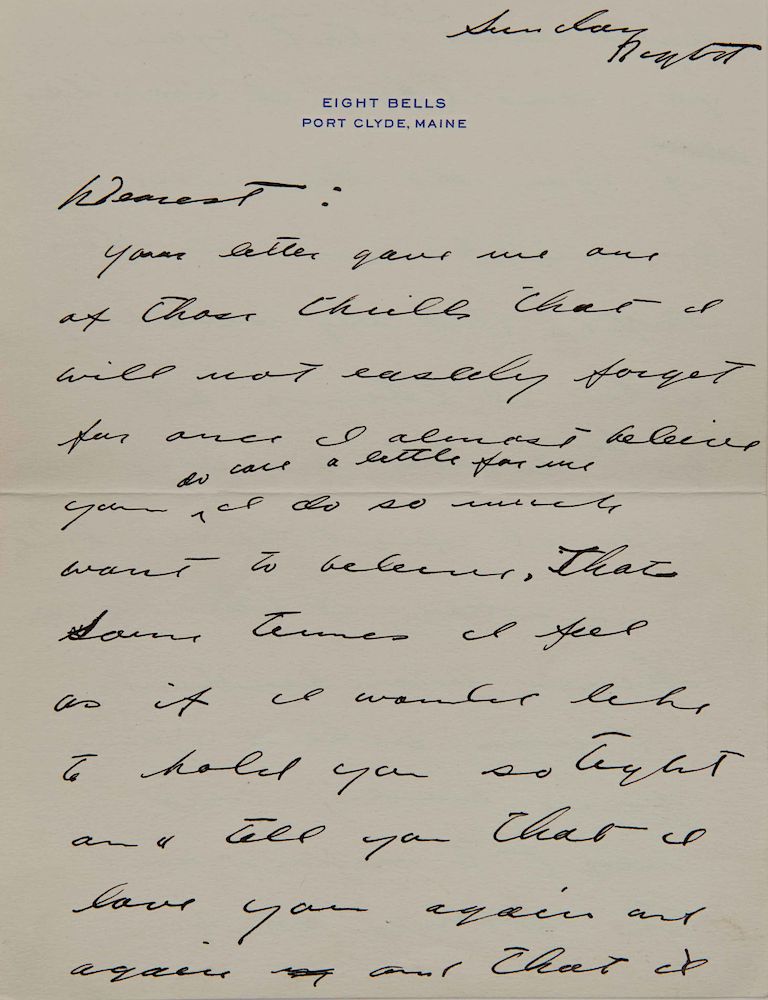 Sunday
Night
EIGHT BELLS
PORT CLYDE, MAINE
Dearest:
your letter gave me one
of those thrills that I
will not easiely forget
for once I almost beleive
do care a little for me
you ^ I do so much
want to beleive, that
some times I feel
as if I would like
to hold you so tight
and tell you that I
love you again and
again and that I